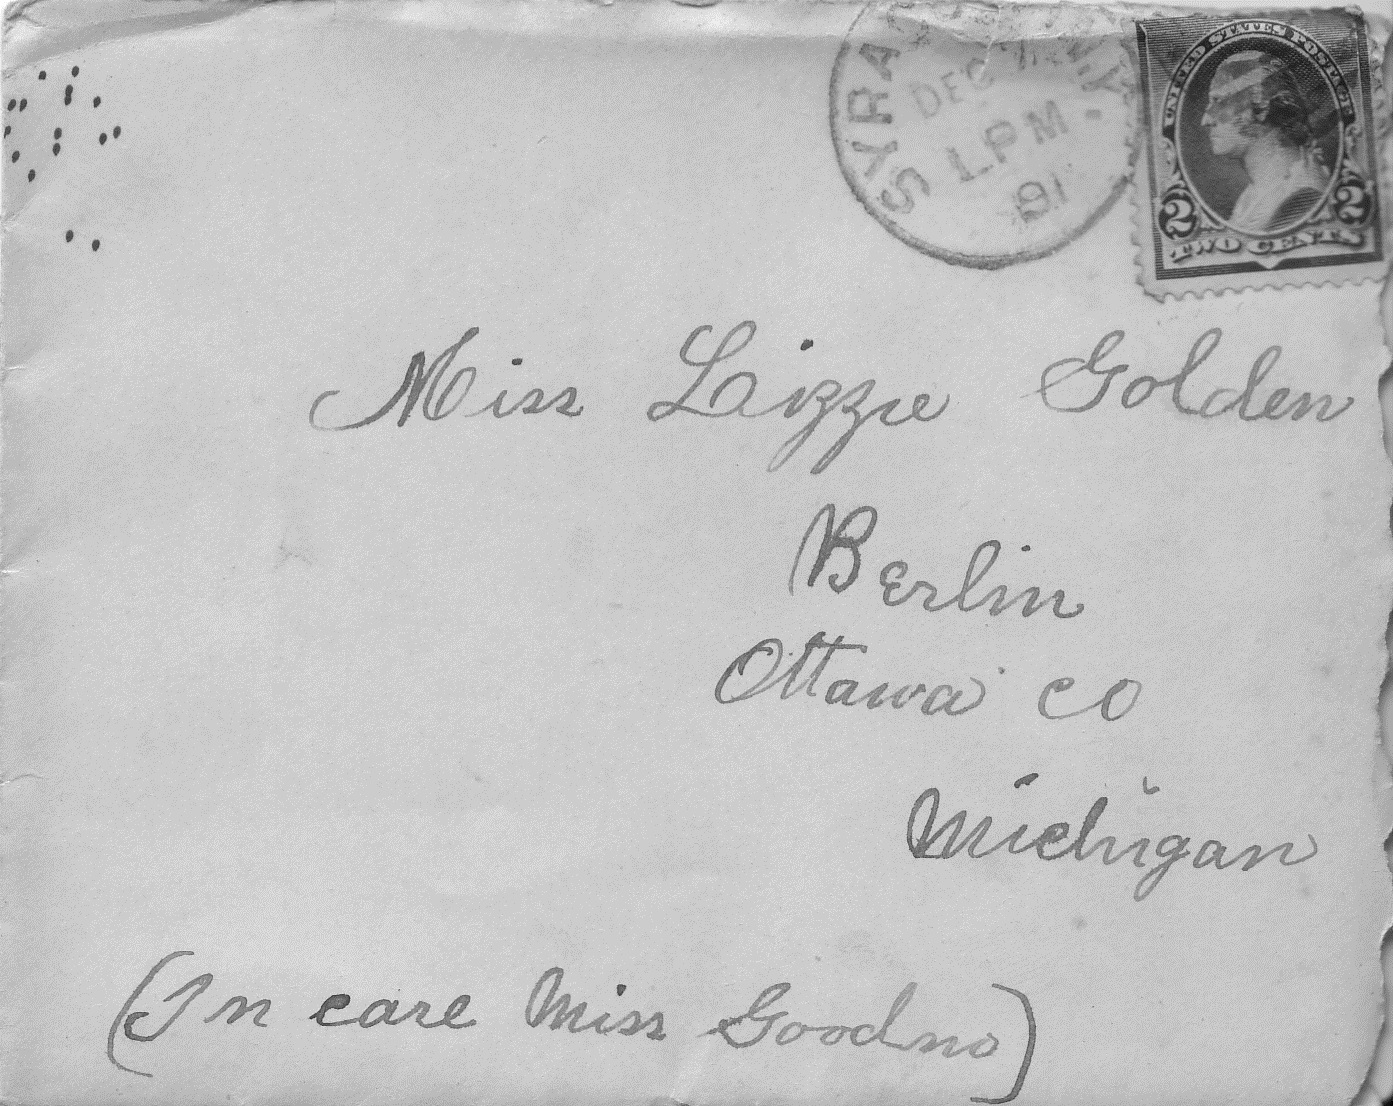 SYRA N.Y.
DEC
1 PM
91
UNITED STATES POSTAGE
2 2
TWO CENTS
Miss Lizzie Golden
Berlin
Ottawa co
Michigan
(In care Miss Goodno)